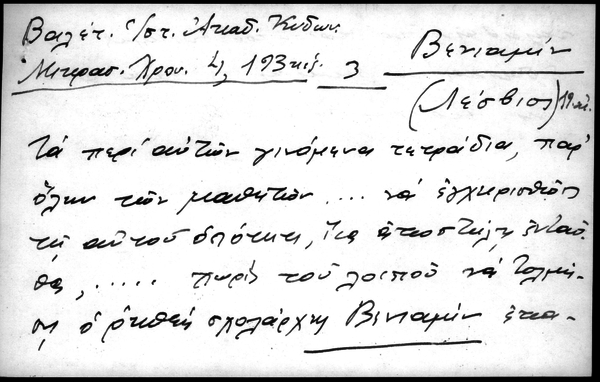 Βαλέτ. Ἱστ. Ἀκαδ. Κυδων.
Μικρασ. Χρον. 4, 193 κἑ. 3 Βενιαμίν
(Λέσβιος) 19 αἰ.
τὰ περὶ αὐτῶν γινόμενα τετράδια, παρ'
ὅλων τῶν μαθητῶν .... νὰ ἐγχειρισθῶσι
τῇ αὐτοῦ ἵνα ἀποστείλῃ ἐνταῦ-
θα, ..... χωρὶς τοῦ λοιποῦ νὰ τολμή-
σῃ ὁ ῥηθεὶς σχολάρχης Βενιαμὶν